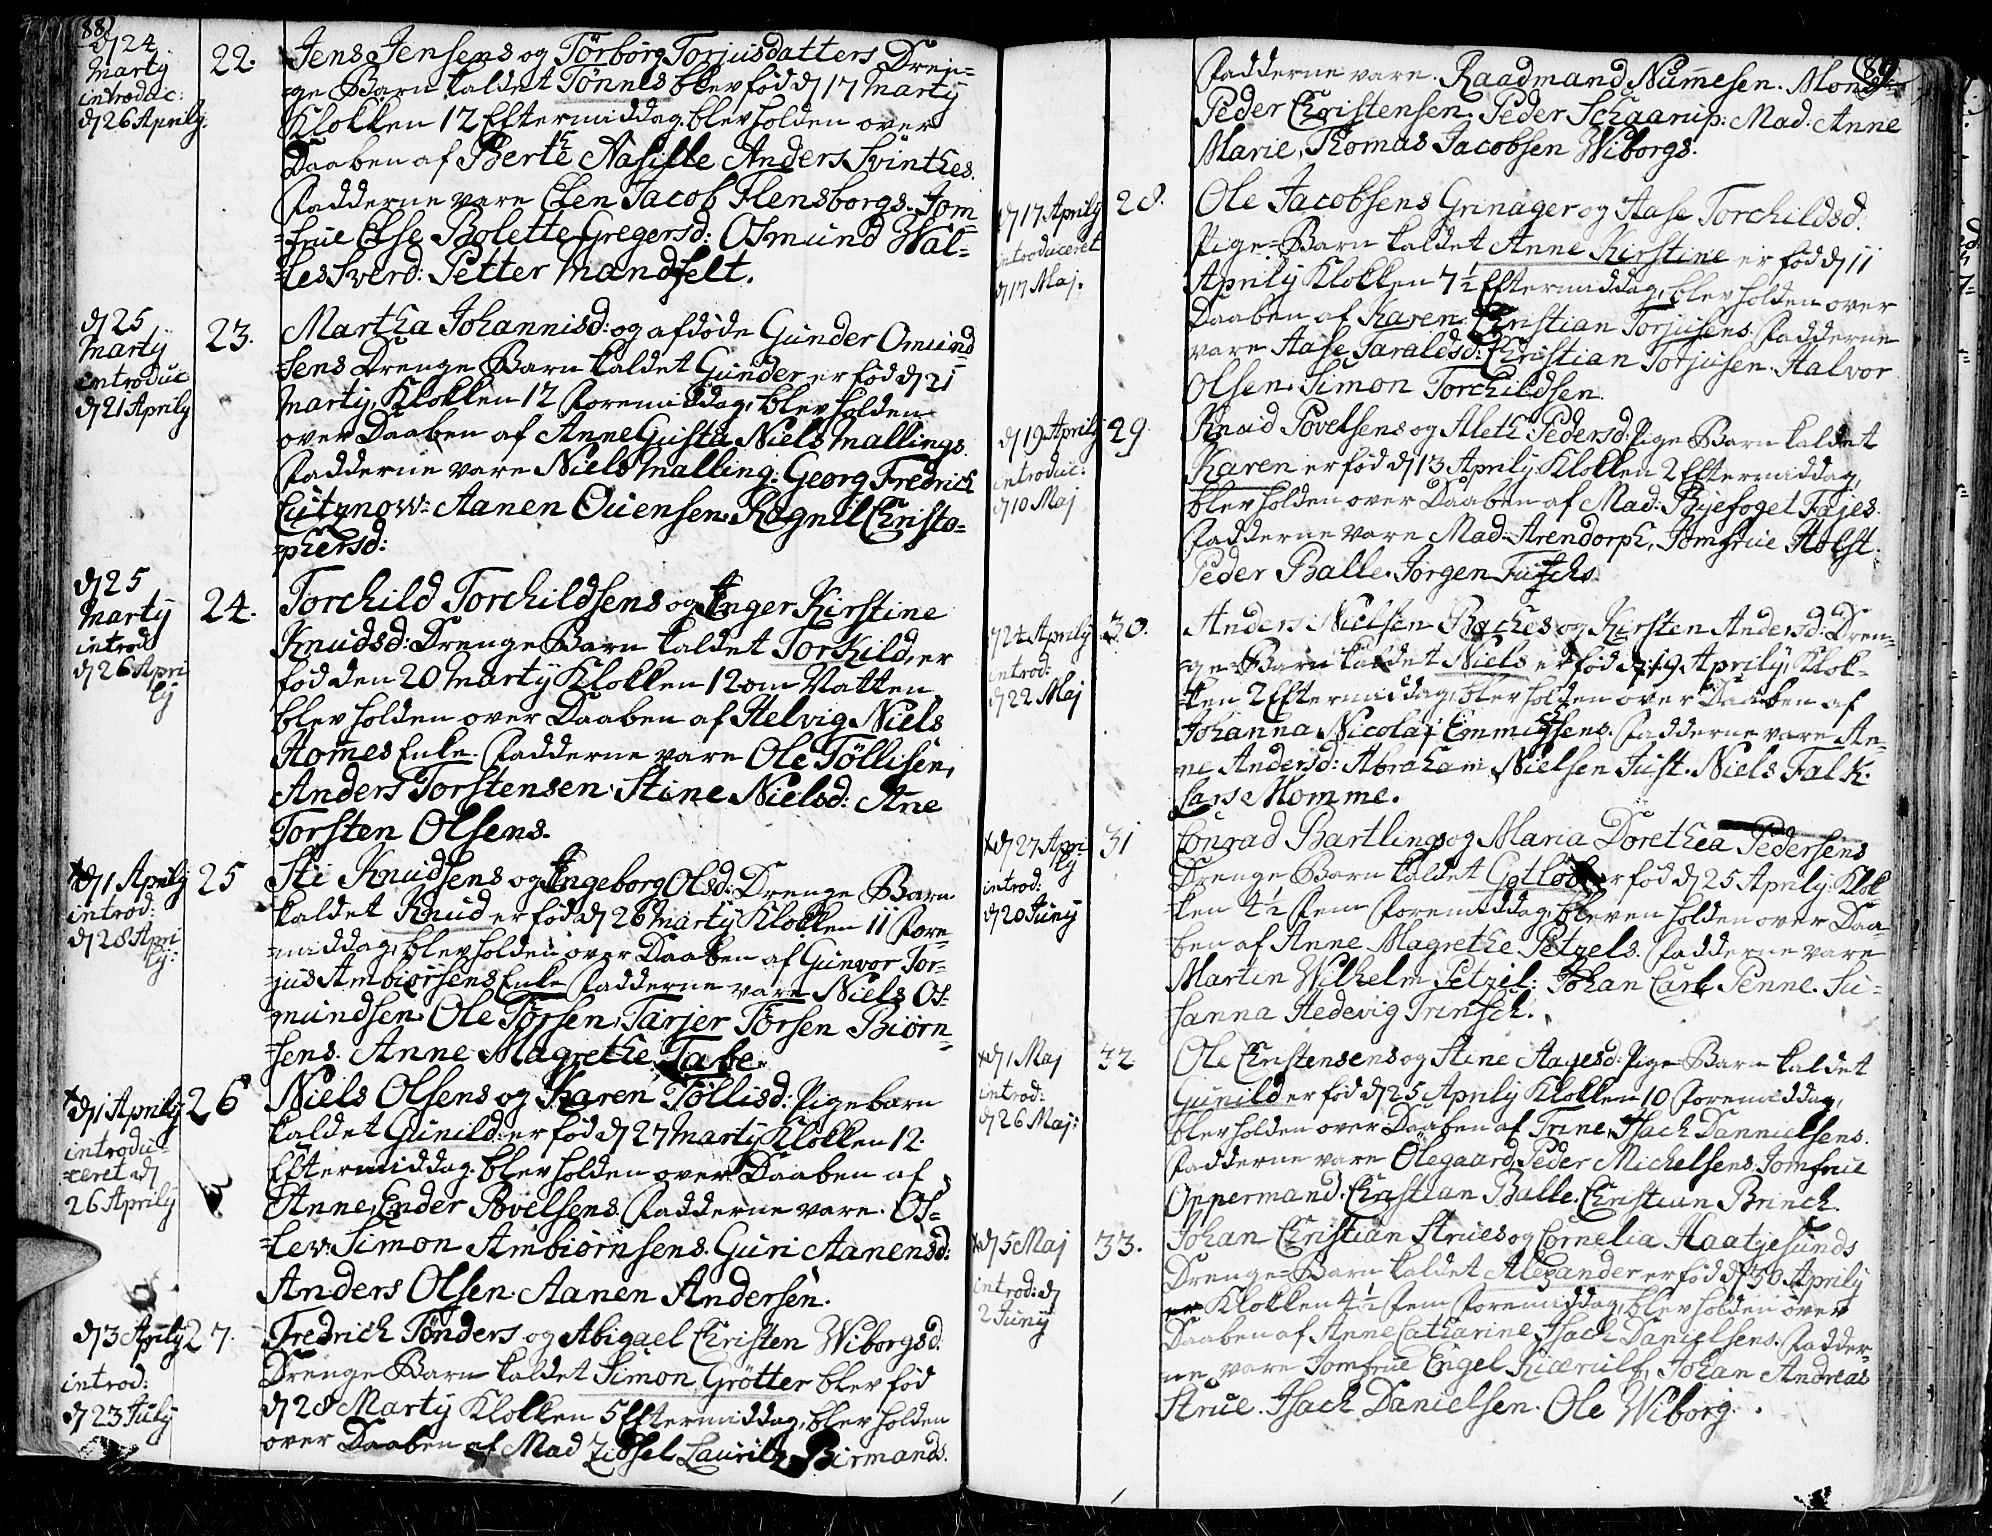 88
d 24
Marty
introduc:
d 26 Aprily.
22.
Jens Jensens og Törborg Torjusdatters Dren=
=ge Barn kaldet Tønnes blev fød d 17 Marty
Klokken 12 Eftermiddag. blev holden over
Daaben af Berthe Aasille Anders Svinthes.
Fadderne vare Elen Jacob Flensborgs. Jom=
=frue Else Bolette Gregersd: Osmund Wal=
=les Sverd: Petter Mandfelt.
d 25
Marty
introduc
d 21 Aprily
23.
Martha Johannisd: og afdöde Gunder Omund=
sens Drenge Barn kaldet Gunder er fød d 21
Marty, Klokken 12 Foremiddag, blev holden
over Daaben af Anne Gusta Niels Mallings.
Fadderne vare Niels Malling: Georg Fredrich
Lutznow: Aanen Ouensen. Rognil Christo=
=phersd:
d 25
Marty
introd
d 26 Apri
ly
24.
Torchild Torchildsens og Inger Kirstine
Knudsd: Drenge Barn kaldet Torkild, er
fød den 20 Marty Klokken 12 om Natten
blev holden over Daaben af Helvig Niels
Hommes Enke. Fadderne vare Ole Töllisen,
Anders Torstensen. Stine Nielsd: Ane
Torsten Olsens.
d 1 Aprily
introd:
d 28 Apri
ly:
25
Sti Knudsens og Ingeborg Olsd: Drenge Barn
kaldet Knud er fød d 26 Marty Klokken 11 Fore=
=middag, blev holden over Daaben af Gunvor Tor=
=jus Ambiörsens Enke Fadderne vare Niels Os=
=mundsen. Ole Torsen, Tarjer Torsen Biörn=
=sens. Anne Magrethe Tabe.
d 1 Aprily
introdu=
=ceret d
26 Aprily
26
Niels Olsens og Karen Töllisd: Pigebarn
kaldet Gunild: er fød d 27 Marty Klokken 12.
Eftermiddag. blev holden over Daaben af
Anne Ender Povelsens. Fadderne vare. Os=
=lev. Simon Ambiörnsens. Guri Aanensd:
Anders Olsen. Aanen Andersen.
d 3 Aprily
introd:
d 23 July
27.
Fredrich Tönders og Abigael Christen Wiborgsd.
Drenge Barn kaldet Simon Grötter blev fød
d 28 Marty Klokken 5 Eftermiddag, blev holden
over Daaben af Mad Zidsel Lauritz Birmands.
89
Fadderne vare. Raadmand Nummesen. Mons:
Peder Christensen. Peder Schaarup: Mad: Anne
Marie, Thomas Jacobsen Wiborgs.
d 17 Aprily
introduceret
d 17 Maj.
28.
Ole Jacobsens Grinager og Aase Torchildsd.
Pige=Barn kaldet Anne Kirstine er fød d 11
Aprily Klokken 7½ Eftermiddag, blev holden over
Daaben af Karen Christian Torjusens. Fadderne
vare Aase Taraldsd: Christian Torjusen. Halvor
Olsen. Simon Torchildsen.
d 19 Aprily
introduc:
d 10 Maj
29.
Knud Povelsens og Aleth Pedersd: Pige Barn kaldet
Karen er fød d 13 Aprily Klokken 2 Eftermiddag,
blev holden over Daaben af Mad: Byefoget Fajes.
Fadderne vare Mad: Arendorph, Jomfrue Holst.
Peder Balle. Jörgen
24 Aprily
introd:
d 22 Maj
30.
Anders Nielsen Baches og Kirsten Andersd: Dren=
ge=Barn kaldet Niels er fød d 19 Aprily, Klok=
=ken 2 Eftermiddag, blev holden over Daaben af
Johanna Nicolaj Emmichsens. Fadderne vare An=
ne Andersd: Abraham Nielsen Just. Niels Falk.
Lars Momme.
d 27 Apri
ly
introd:
d 20 Juny
31
Conrad Bartlings og Maria Dorethea Pedersens
Drenge Barn kaldet Gotlob er fød d 25 Aprily: Klok
ken 4½ Fem Foremiddag, bleven holden over Daa=
ben af Anne Magrethe Petzels. Fadderne vare
Martin Wilhelm Petzel: Johan Carl Penne. Su=
sanna Hedevig Trinsch.
d 1 Maj
introd:
d 26 Maj:
32
Ole Christensens og Stine Aagesd: Pige=Barn kaldet
Gunild er fød d 25 Aprily Klokken 10 Foremiddag,
blev holden over Daaben af Trine, Isach Dannielsens.
Fadderne vare Olegaard, Peder Michelsens. Jomfrue
Oppermand. Christian Balle. Christian Brinch.
d 5 Maj
introd: d
2 Juny
33.
Johan Christian Strues og Cornelia Haatjesunds
Drenge=Barn kaldet Alexander er fød d 30 Aprily
er Klokken 4½ Fem Foremiddag, blev holden over
Daaben af Anne Catharine, Isach Danielsens. Fadder=
ne vare Jomfrue Engel Kiærulf, Johan Andreas
Strue. Isach Danielsen. Ole Wiborg.